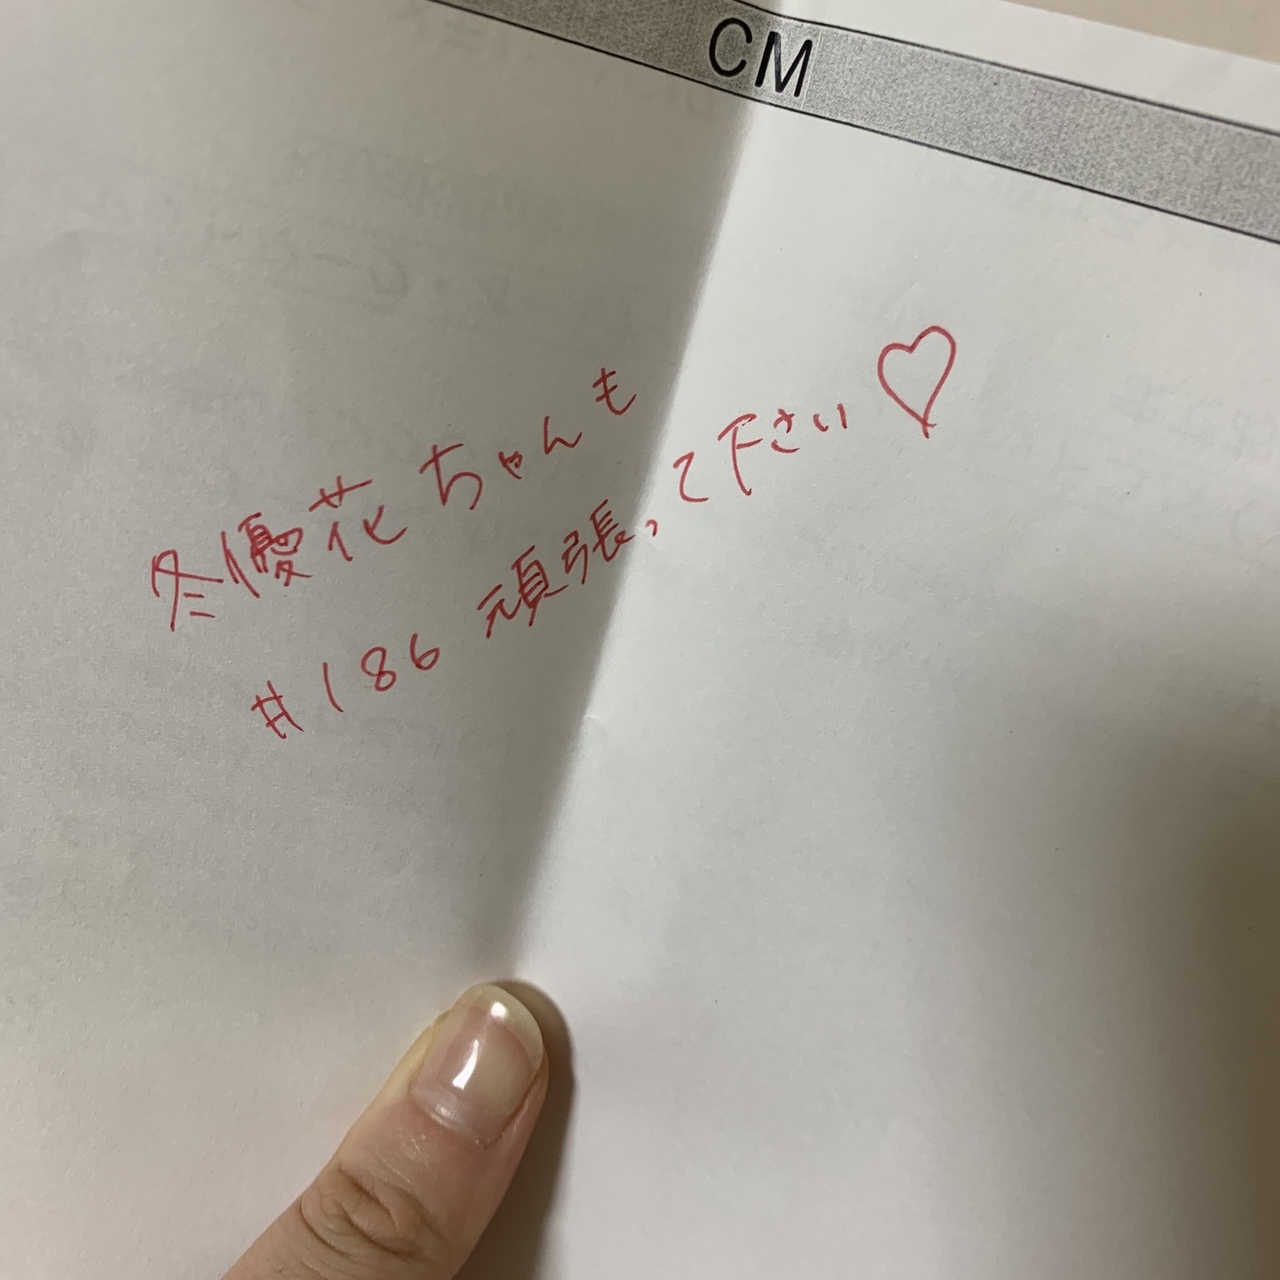 CM
冬優花ちゃんも
#186 頑張って下さい♡